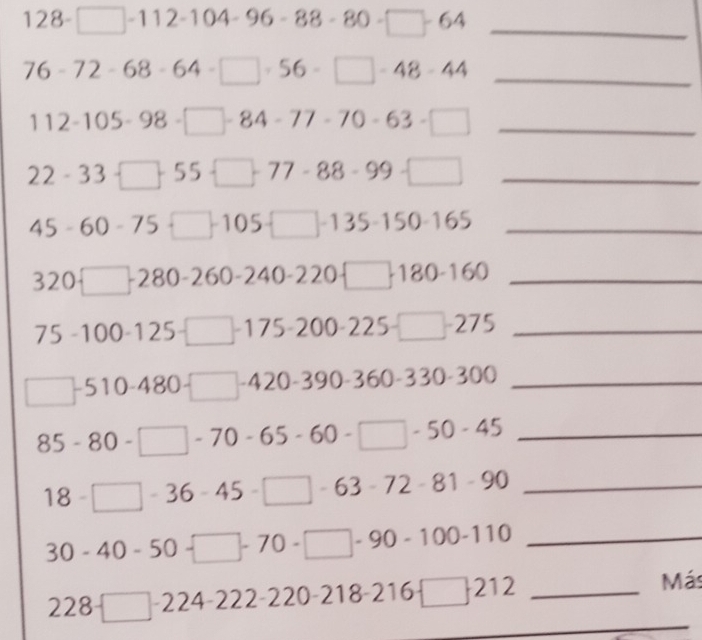 128- □ -112-104- 96 - 88 - 80 - □ - 64 ________
76 - 72 - 68 - 64 - □ - 56 - □ - 48 - 44 ________
112-105- 98 - □ - 84 - 77 - 70 - 63 - □ ________
22 - 33 - □ - 55 - □ - 77 - 88 - 99 - □ ________
45 - 60 - 75 - □ -105- □ -135-150-165 ________
320- □ -280-260-240-220- □ -180-160 ________
75 -100-125- □ -175-200-225- □ -275 ________
□ -510-480- □ -420-390-360-330-300 ________
85 - 80 - □ - 70 - 65 - 60 - □ - 50 - 45 ________
18 - □ - 36 - 45 - □ - 63 - 72 - 81 - 90 ________
30 - 40 - 50 - □ - 70 - □ - 90 - 100-110 ________
228- □ -224-222-220-218-216- □ -212 ________ Más